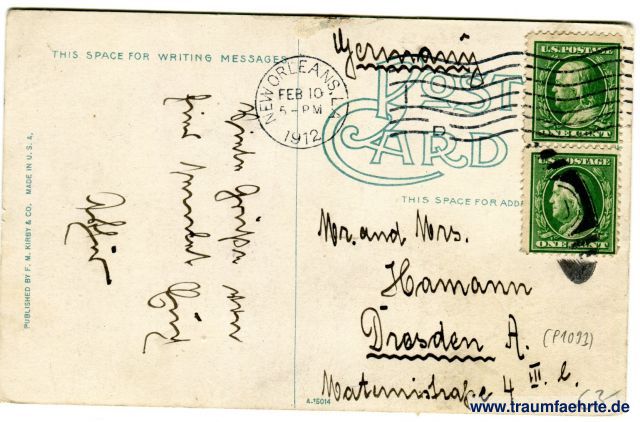 THIS SPACE FOR WRITING MESSAGES
PUBLISHED BY F. M. KIRBY & CO. MADE IN U. S. A.
Germany
NEW ORLEANS, LA
FEB 10
5-PM
1912
POST
CARD
U.S. POSTAGE
ONE CENT
U.S. POSTAGE
ONE CENT
THIS SPACE FOR ADDR
Mr. and Mrs.
Hamann
Dresden A.
(P1093)
Maternistraße 4 III. l.
A-15014
www.traumfaehrte.de